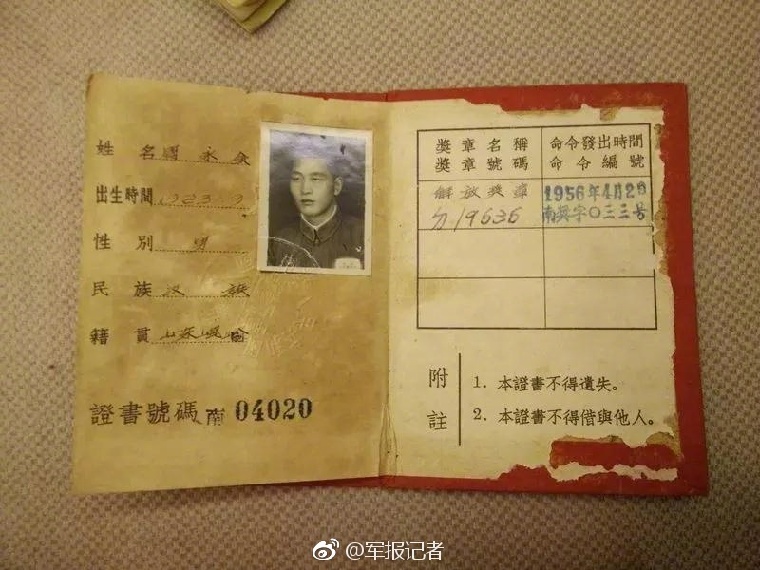 姓名 永
出生時間 1923 7
性別 男
民族 汉族
籍貫 山东
證書號碼 南 04020
獎章名稱 命令發出時間
獎章號碼 命令編號
解放奖章 1956年4月20
19636 南奬字〇三三号
附註
1. 本證書不得遺失。
2. 本證書不得借與他人。
@军报记者